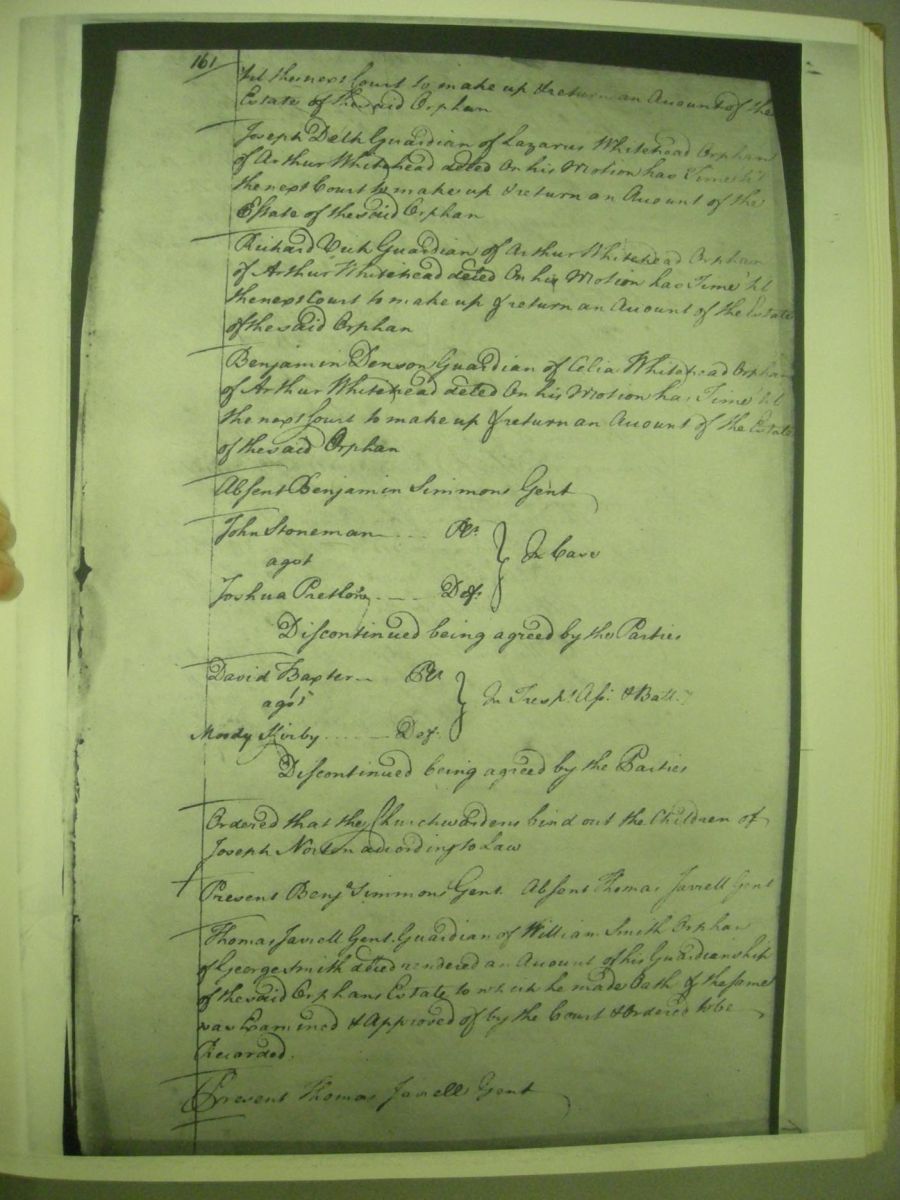 161
'til the next Court to make up & return an Account of the
Estate of the said Orphan
Joseph Delk Guardian of Lazarus Whitehead Orphan
of Arthur Whitehead deced On his Motion has Time 'til
the next Court to make up & return an Account of the
Estate of the said Orphan
Richard Vick Guardian of Arthur Whitehead Orphan
of Arthur Whitehead deced On his Motion has Time 'til
the next Court to make up & return an Account of the Estate
of the said Orphan
Benjamin Denson Guardian of Celia Whitehead Orphan
of Arthur Whitehead deced On his Motion has Time 'til
the next Court to make up & return an Account of the Estate
of the said Orphan
Absent Benjamin Simmons Gent
John Stoneman .... Plt.
agst
In Case
Joshua Pretlow .... Def.
Discontinued being agreed by the Parties
David Baxter Plt
agst
In Tresp.s Ass. & Batt.y
Moody Kirby ...... Def.
Discontinued being agreed by the Parties
Ordered that the Churchwardens bind out the Children of
Joseph Norton according to Law
Present Benja Simmons Gent. Absent Thomas Jarrell Gent
Thomas Jarrell Gent. Guardian of William Smith Orphan
of George Smith deced rendered an Account of his Guardianship
of the said Orphans Estate to which he made Oath & the same
was Examined & Approved of by the Court & Ordered to be
Recorded.
Present Thomas Jarrell Gent